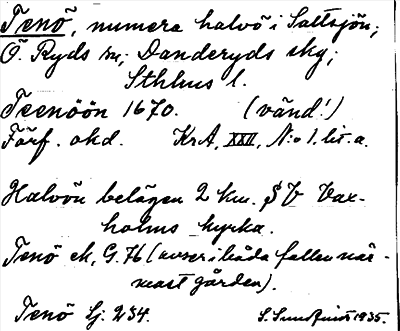 Tenö, numera halvö i Saltsjön;
Ö. Ryds sn; Danderyds skg;
Sthlms l.
Teenöön 1670. (vänd!)
Förf. okd. KrA, XXII, N:o 1, lit. a.
Halvön belägen 2 km. SV Vax-
holms kyrka.
Tenö ek, G. 76 (avser i båda fallen när-
mast gården).
Tenö Lj. 234.
S. Sundquist 1935.